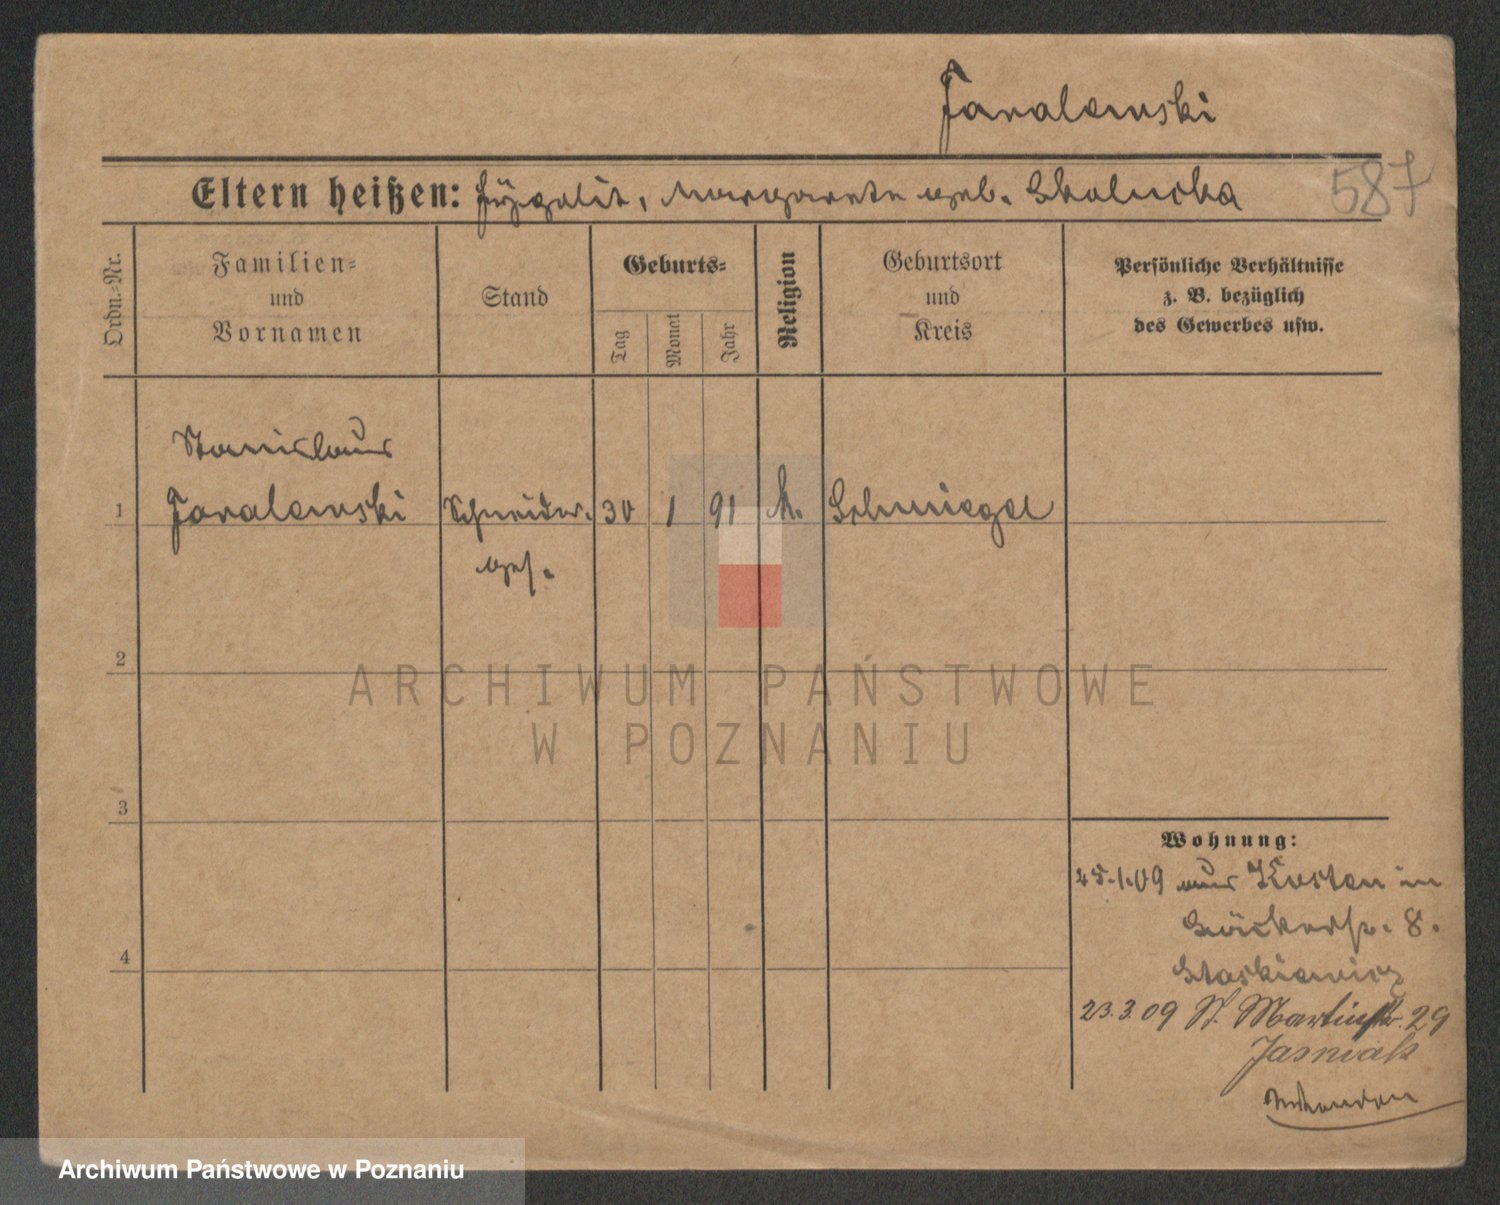 Jaralewski
587
Eltern heißen: Hypolit, Margarete geb. Skalucka
Ordn.-Nr.
Familien-
und
Vornamen
Stand
Geburts-
Tag
Monat
Jahr
Religion
Geburtsort
und
Kreis
Persönliche Verhältnisse
z. B. bezüglich
des Gewerbes usw.
Stanislaus
1 Jaralewski Schneider- 30 1 91 k. Schmiegel
ges.
2
3
4
Wohnung:
25.1.09 aus Kosten in
Bäckerstr. 8.
Staskiewicz
23.3.09 St. Martinstr. 29
Jasniak
ARCHIWUM PAŃSTWOWE
W POZNANIU
Archiwum Państwowe w Poznaniu